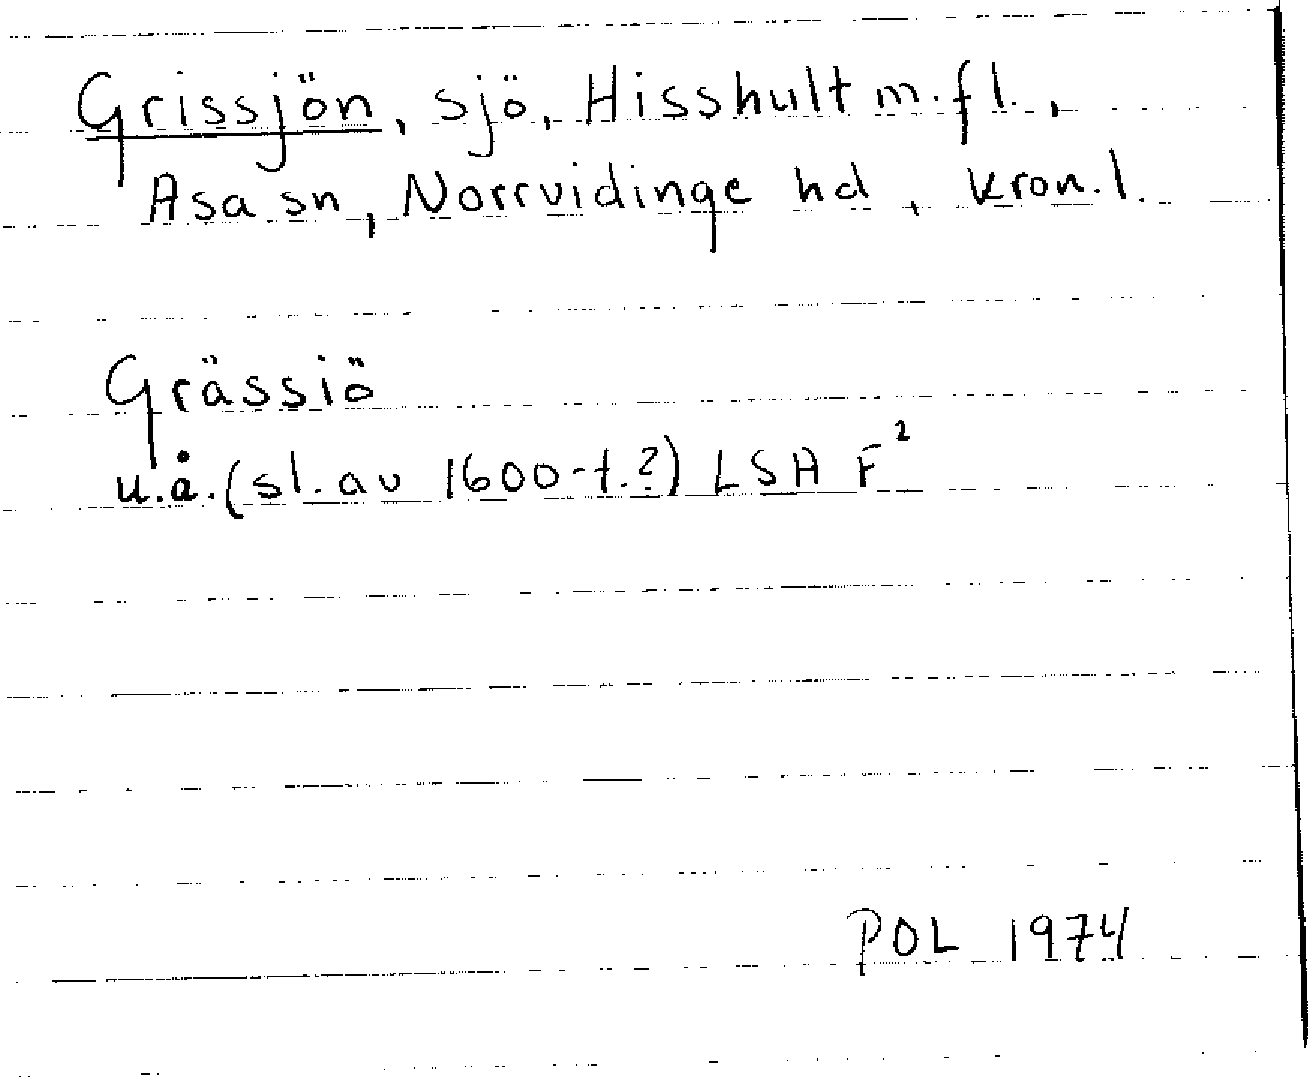 Grissjön, sjö, Hisshult m.fl.,
Asa sn, Norrvidinge hd, Kron.l.
Grässiö
u.å. (sl. av 1600-t.?) LSA F²
POL 1974